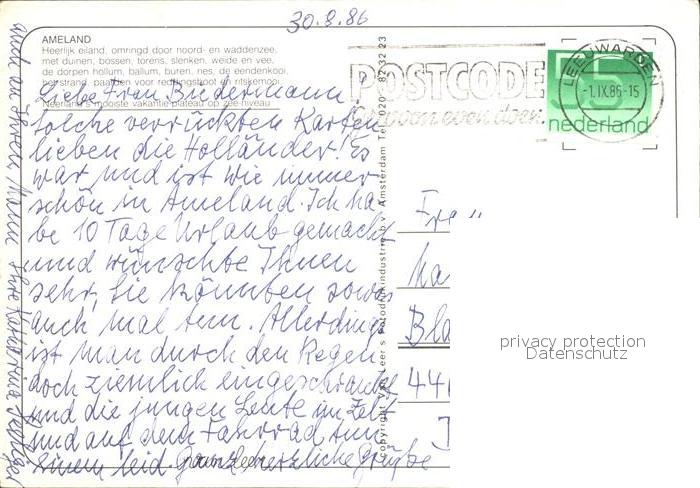 30.8.86
AMELAND
Heerlijk eiland, omringd door noord- en waddenzee,
met duinen, bossen, torens, slenken, weide en vee.
de dorpen hollum, ballum, buren, nes, de eendenkooi,
het strand, paarden voor reddingsboot en ritskemooi.
Neerland's mooiste vakantie-plateau op zee-niveau
Liebe Frau Biedermann,
solche verrückten Karten
lieben die Holländer! Es
war und ist wie immer
schön in Ameland. Ich ha-
be 10 Tage Urlaub gemacht
und wünschte Ihnen
sehr, Sie könnten sowas
auch mal tun. Allerdings
ist man durch den Regen
doch ziemlich eingeschränkt
und die jungen Leute im Zelt
und auf dem Fahrrad tun
einem leid. Ganz herzliche Grüße
auch an Ihren Mann Ihre Katharina
copyright Van Leer's Fotodrukindustrie b.v. Amsterdam Tel. 020 - 82 32 23
POSTCODE
gewoon even doen.
LEEUWARDEN
-1.IX.86-15
55
nederland
Fra
Ma
Bla
44
privacy protection
Datenschutz